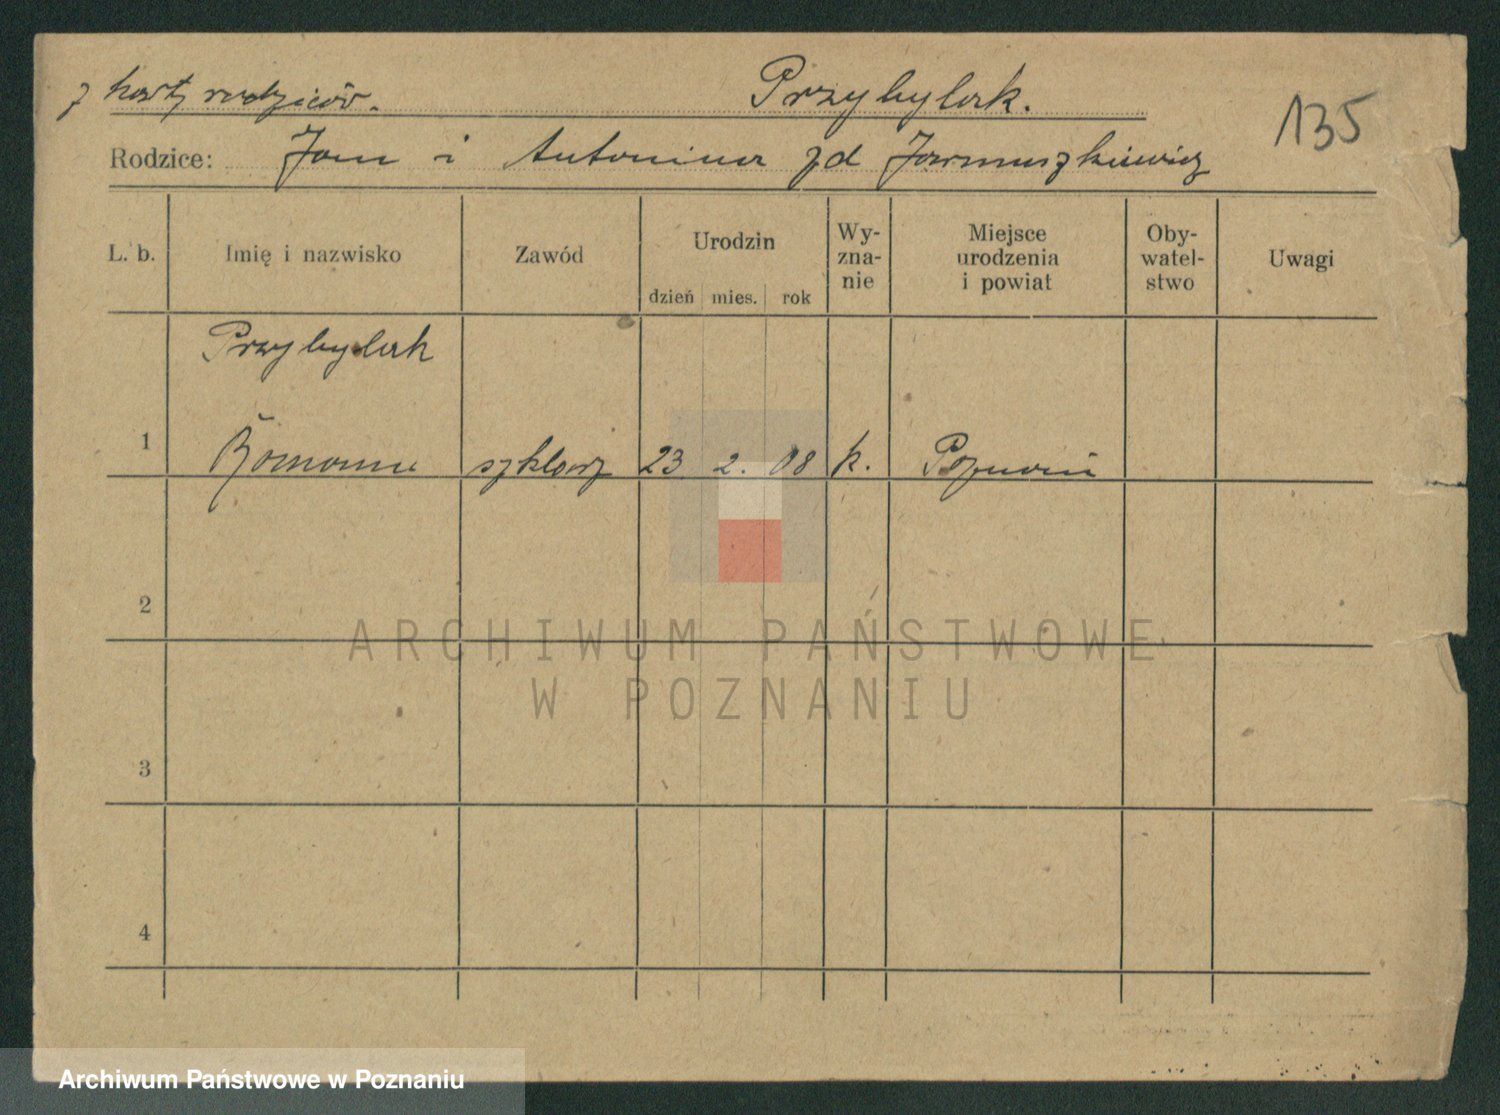 z karty rodziców. Przybylak.
135
Rodzice: Jan i Antonina zd Jarmuszkiewicz
L. b. Imię i nazwisko Zawód Urodzin dzień mies. rok Wy-znanie Miejsce urodzenia i powiat Oby-watel-stwo Uwagi
Przybylak
1 Roman szklarz 23 2. 08 k. Poznań
2
ARCHIWUM PAŃSTWOWE
W POZNANIU
3
4
Archiwum Państwowe w Poznaniu